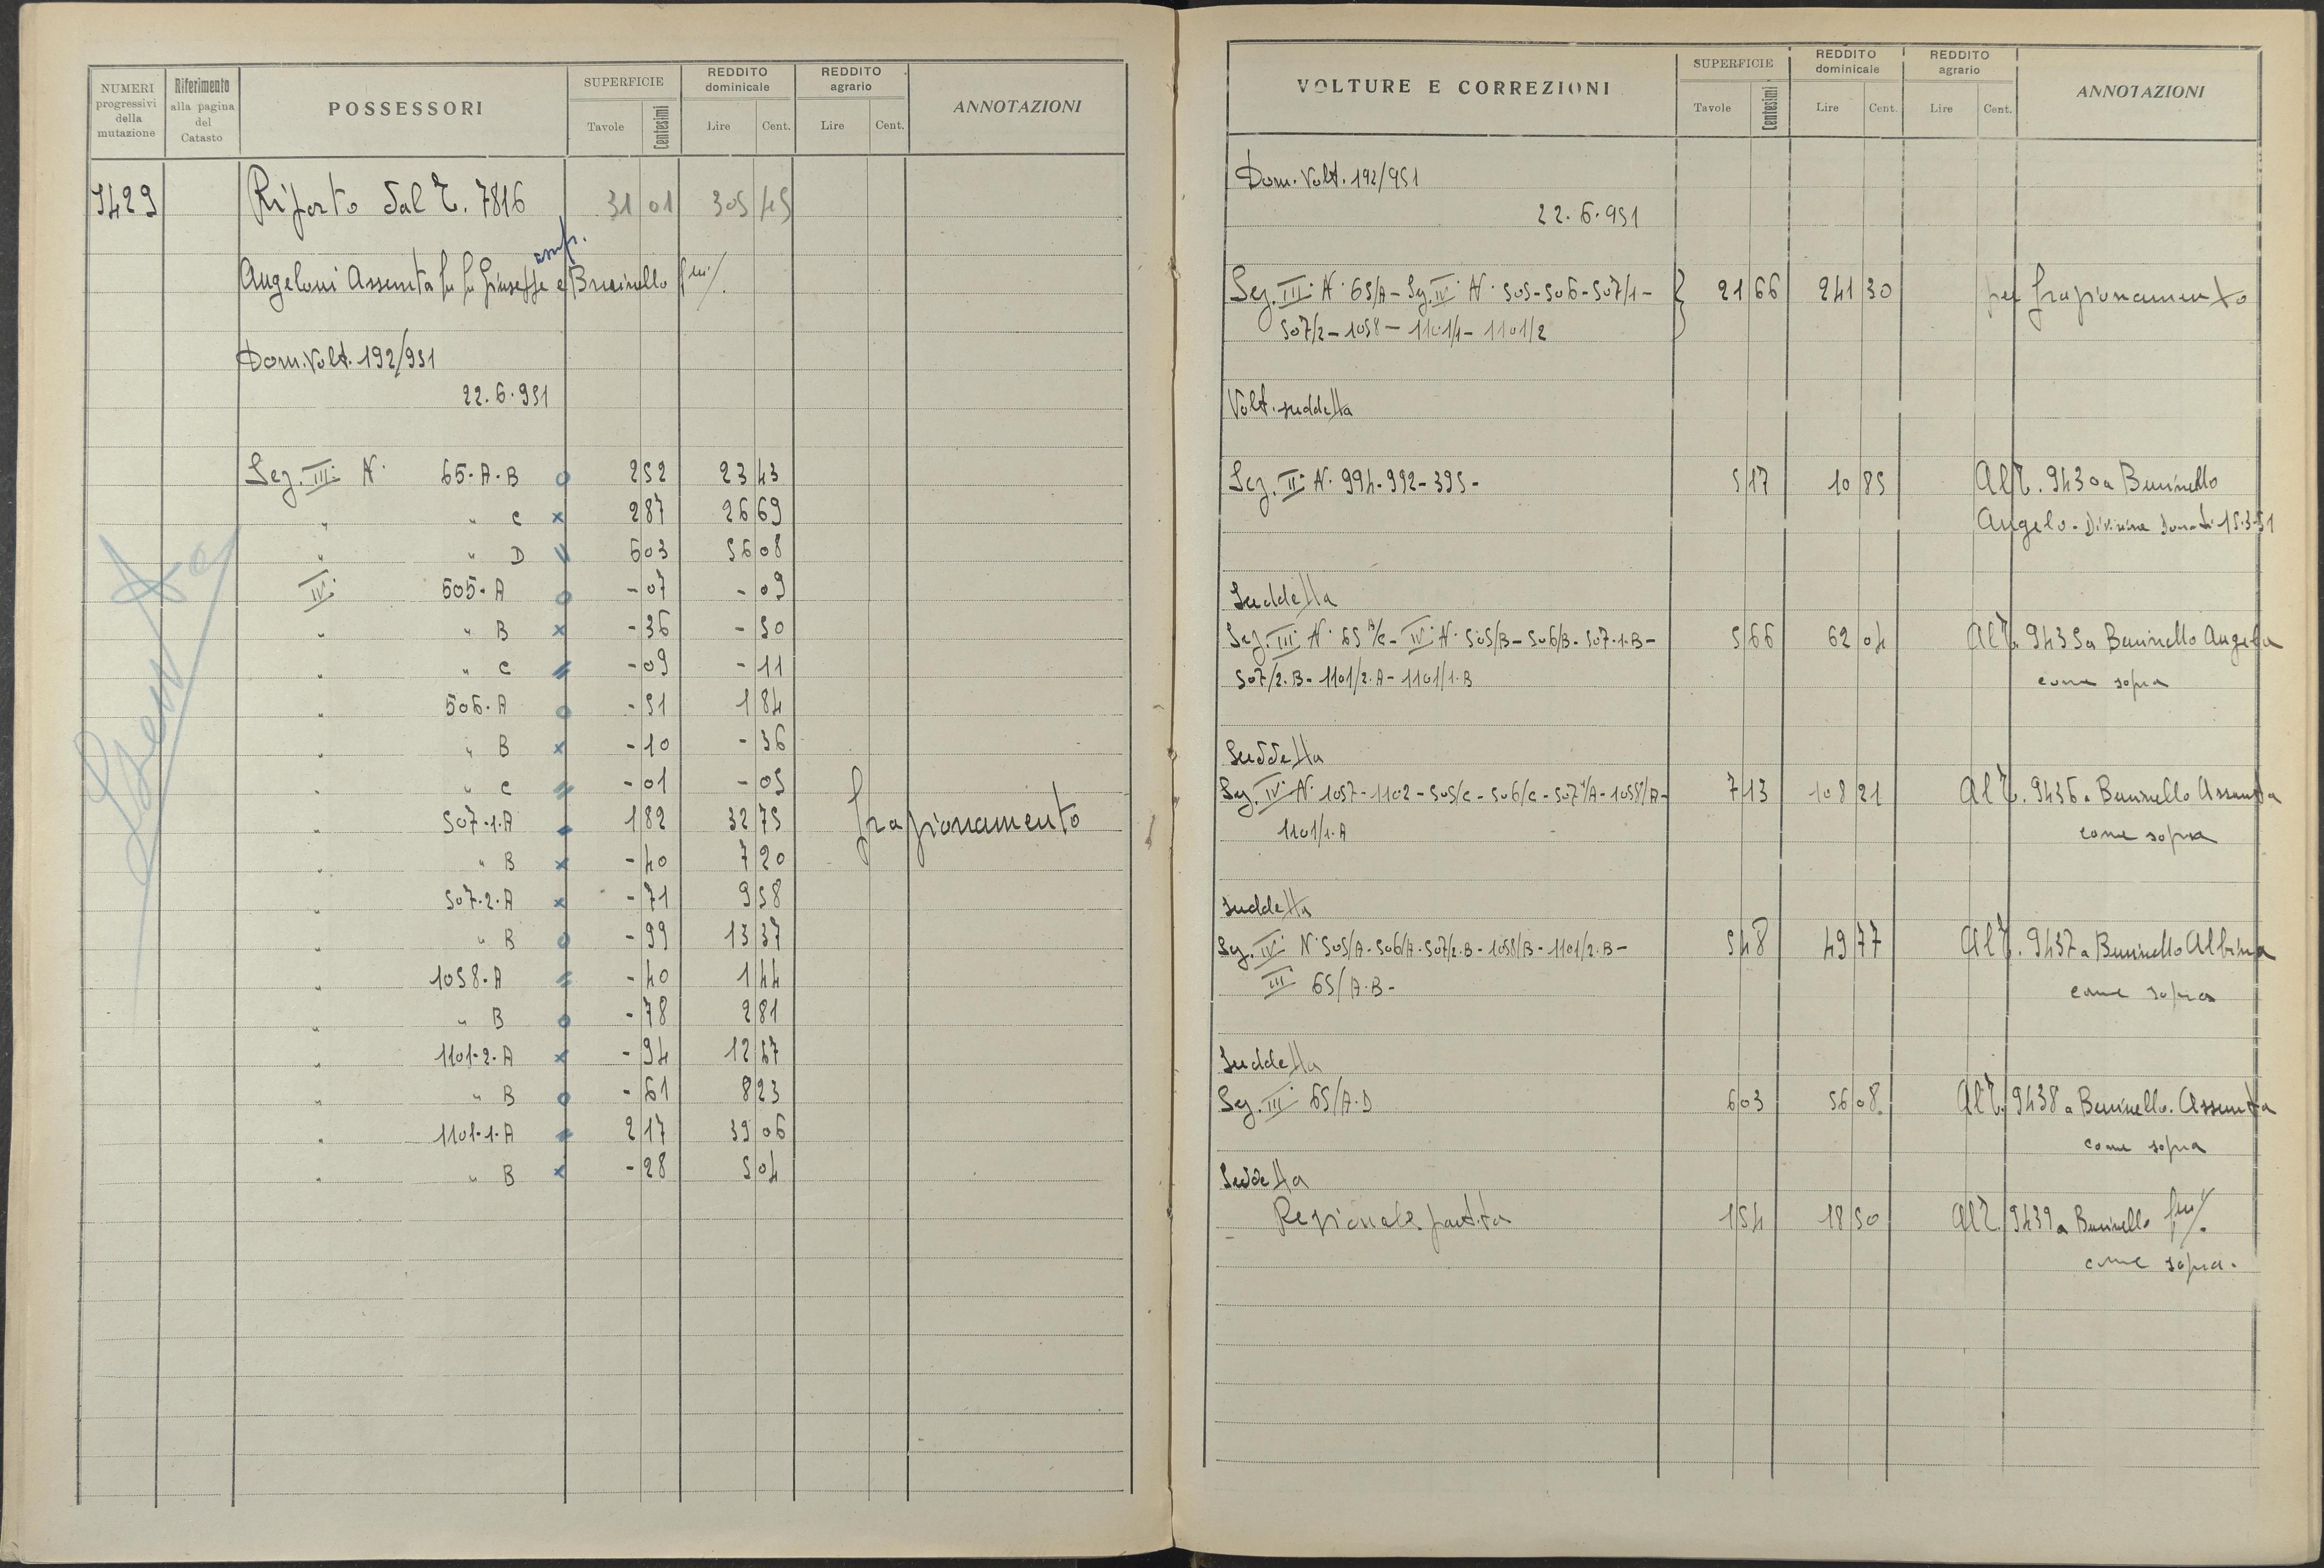 NUMERI progressivi della mutazione | Riferimento alla pagina del Catasto | POSSESSORI | SUPERFICIE Tavole Centesimi | REDDITO dominicale Lire Cent. | REDDITO agrario Lire Cent. | ANNOTAZIONI
9429 Riporto dal T. 7816 31 01 305 45
usufr.
Angeloni Assunta fu Giuseppe e Buninello
Dom. Volt. 192/951
22.6.951
Sez. III: N. 65-A-B o 2 52 23 43
" " C x 2 87 26 69
" " D \\ 6 03 56 08
IV: 505-A o - 07 - 09
" " B x - 36 - 50
" " C = - 09 - 11
" 506-A o - 51 1 84
" " B x - 10 - 36
" " C = - 01 - 05
" 507-1-A = 1 82 32 75 frazionamento
" " B x - 40 7 20
" 507-2-A x - 71 9 58
" " B o - 99 13 37
" 1058-A = - 40 1 44
" " B o - 78 2 81
" 1101-2-A x - 94 12 67
" " B o - 61 8 23
" 1101-1-A = 2 17 39 06
" " B x - 28 5 04
VOLTURE E CORREZIONI | SUPERFICIE Tavole Centesimi | REDDITO dominicale Lire Cent. | REDDITO agrario Lire Cent. | ANNOTAZIONI
Dom. Volt. 192/951
22.6.951
Sez. III: N. 65/A - Sez. IV: N. 505-506-507/1- } 21 66 241 30 per frazionamento
507/2-1058-1101/1-1101/2
Volt. suddetta
Sez. II: N. 994-992-395- 5 17 10 85 Al T. 9430 a Buninello
Angelo - Divisione 15-3-51
Suddetta
Sez. III: N. 65 A/C - IV: N. 505/B-506/B-507-1-B- 5 66 62 04 Al T. 9435 a Buninello Angela
507/2-B-1101/2-A-1101/1-B come sopra
Suddetta
Sez. IV: N. 1057-1102-505/C-506/C-507 1/A-1058/A- 7 13 108 21 Al T. 9436 a Buninello Assunta
1101/1-A come sopra
Suddetta
Sez. IV: N. 505/A-506/A-507/2-B-1058/B-1101/2-B- 5 48 49 77 Al T. 9437 a Buninello Albina
III 65/A-B- come sopra
Suddetta
Sez. III 65/A-D 6 03 56 08 Al T. 9438 a Buninello Assunta
come sopra
Suddetta
Rezionale partita 1 54 18 50 Al T. 9439 a Buninello
come sopra.